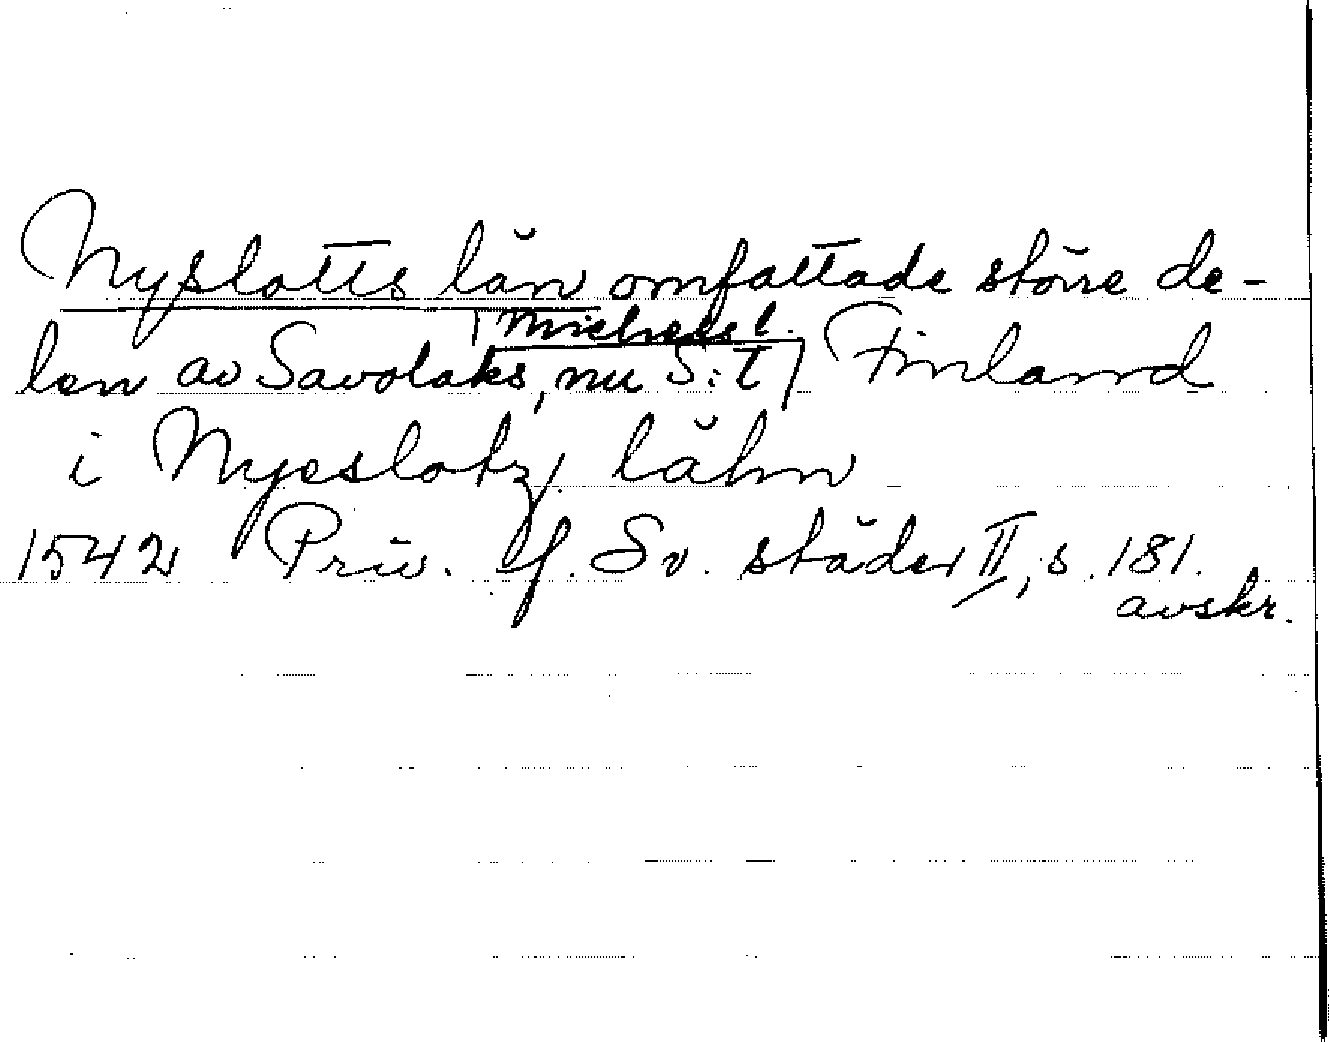 Nyslotts län omfattade större de-
len av Savolaks, nu S:t Michels l. Finland
i Nyeslotz lähn
1542 Priv. f. Sv. städer II, s. 181.
avskr.